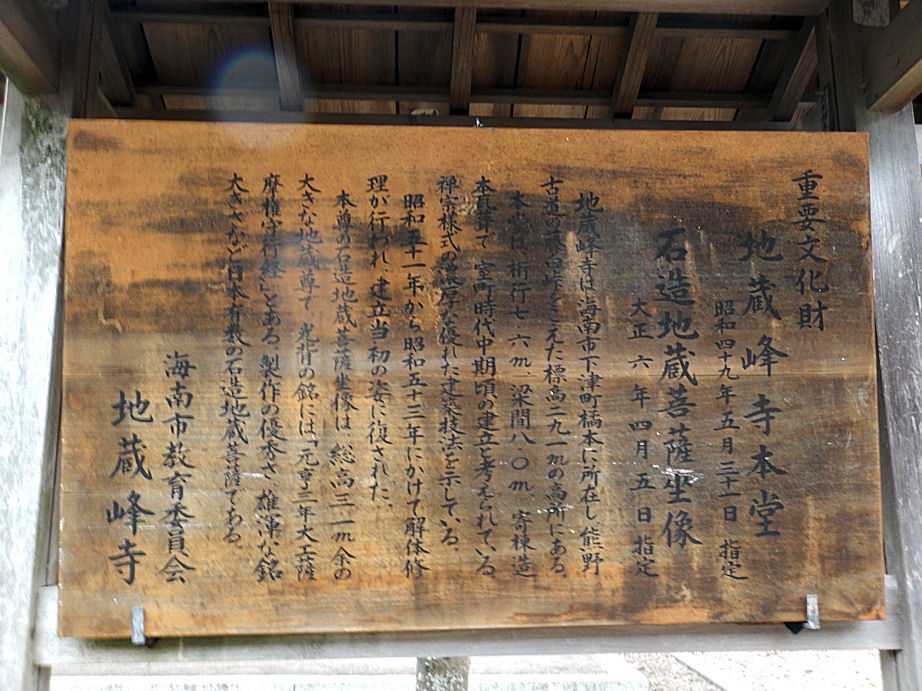 重要文化財
地蔵峰寺本堂
昭和四十九年五月三十一日 指定
石造地蔵菩薩坐像
大正六年四月五日 指定
地蔵峰寺は海南市下津町橘本に所在し熊野
古道の藤白坂をこえた標高二九一mの高所にある。
本堂は、桁行七・六m、梁間八・〇m、寄棟造
本瓦葺で、室町時代中期頃の建立と考えられている。
禅宗様式の濃厚な優れた建築技法を示している。
昭和五十一年から昭和五十三年にかけて解体修
理が行われ、建立当初の姿に復された。
本尊の石造地蔵菩薩坐像は、総高三・一m余の
大きな地蔵尊で、光背の銘には、「元亨三年大工薩
摩権守行経」とある。製作の優秀さ、雄渾な銘
大きさなど日本有数の石造地蔵菩薩である。
海南市教育委員会
地蔵峰寺